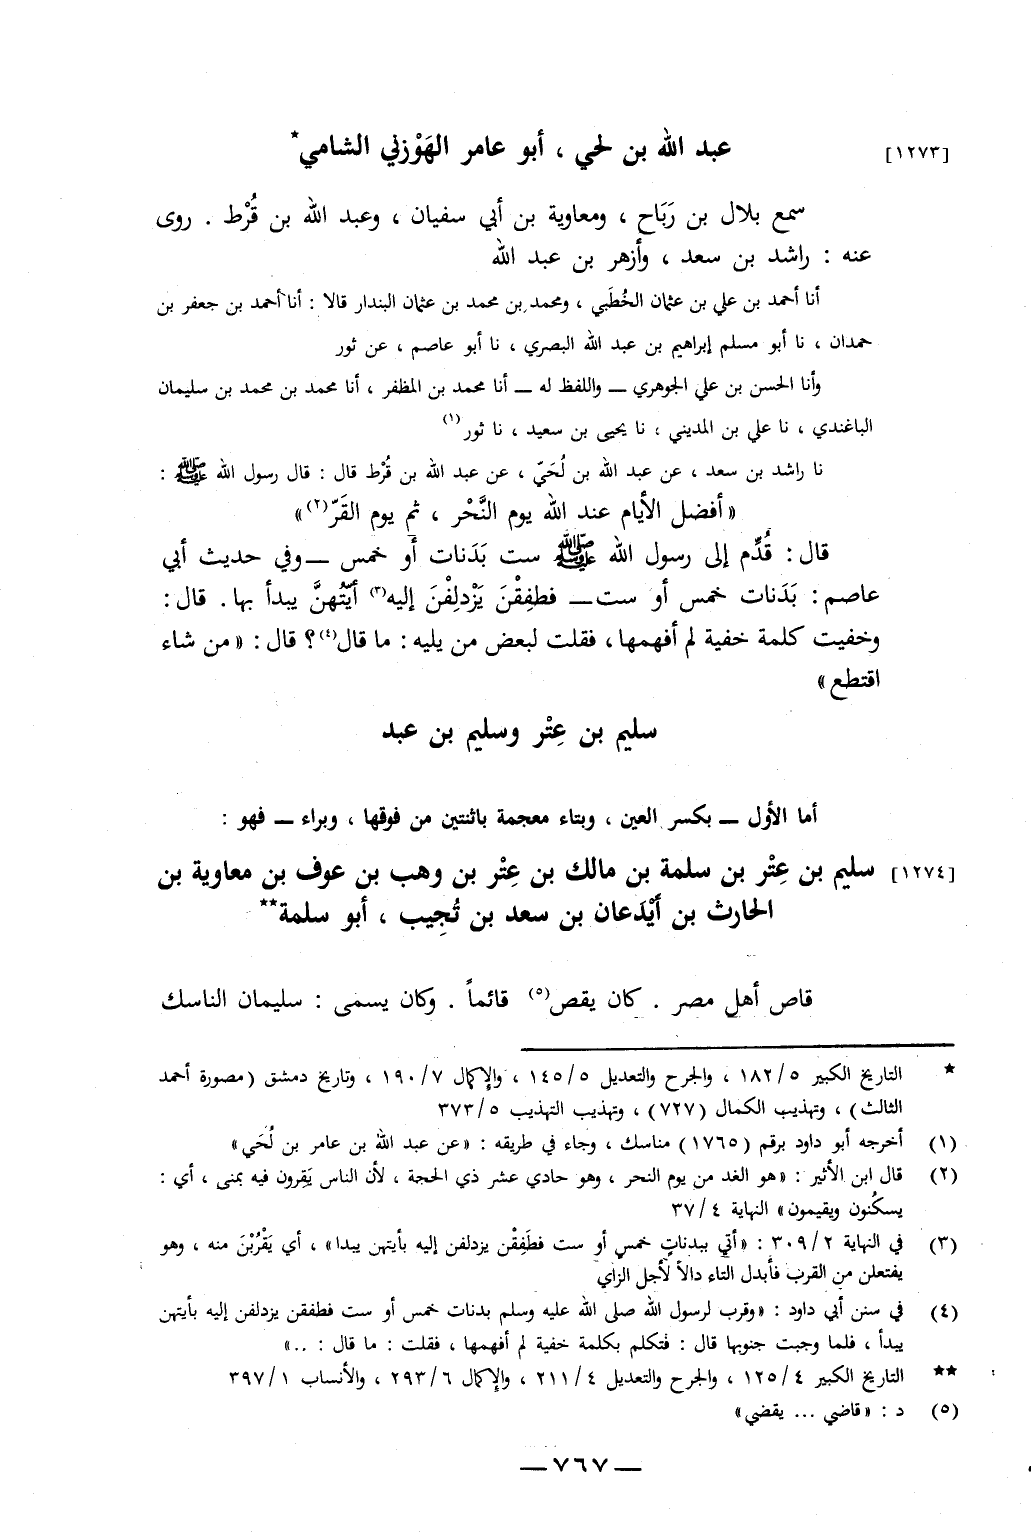 [١٢٧٣] عبد الله بن لحي ، أبو عامر الهَوْزني الشامي*
سمع بلال بن رَبَاح ، ومعاوية بن أبي سفيان ، وعبد الله بن قُرْط . روى
عنه : راشد بن سعد ، وأزهر بن عبد الله
أنا أحمد بن علي بن عثمان الخُطَبي ، ومحمد بن محمد بن عثمان البندار قالا : أنا أحمد بن جعفر بن
حمدان ، نا أبو مسلم إبراهيم بن عبد الله البصري ، نا أبو عاصم ، عن ثور
وأنا الحسن بن علي الجوهري ــ واللفظ له ــ أنا محمد بن المظفر ، أنا محمد بن محمد بن سليمان
الباغندي ، نا علي بن المديني ، نا يحيى بن سعيد ، نا ثور(١)
نا راشد بن سعد ، عن عبد الله بن لُحَيّ ، عن عبد الله بن قُرْط قال : قال رسول الله ﷺ :
« أفضل الأيام عند الله يوم النَّحْر ، ثم يوم القَرّ(٢)»
قال : قُدِّم إلى رسول الله ﷺ ست بَدَنات أو خمس ــ وفي حديث أبي
عاصم : بَدَنات خمس أو ست ــ فطفِقْنَ يَزْدلِفْنَ إليه(٣) أيّتُهنَّ يبدأ بها . قال :
وخفيت كلمة خفية لم أفهمها ، فقلت لبعض من يليه : ما قال(٤)؟ قال : « من شاء
اقتطع »
سليم بن عِتْر وسليم بن عبد
أما الأول ــ بكسر العين ، وبتاء معجمة باثنتين من فوقها ، وبراء ــ فهو :
[١٢٧٤] سليم بن عِتْر بن سلمة بن مالك بن عِتْر بن وهب بن عوف بن معاوية بن
الحارث بن أَيْدَعان بن سعد بن تُجيب ، أبو سلمة**
قاص أهل مصر . كان يقص(٥) قائماً . وكان يسمى : سليمان الناسك
* التاريخ الكبير ٥/ ١٨٢ ، والجرح والتعديل ٥/ ١٤٥ ، والإكمال ٧/ ١٩٠ ، وتاريخ دمشق (مصورة أحمد
الثالث) ، وتهذيب الكمال (٧٢٧) ، وتهذيب التهذيب ٥/ ٣٧٣
(١) أخرجه أبو داود برقم (١٧٦٥) مناسك ، وجاء في طريقه : «عن عبد الله بن عامر بن لُحَي»
(٢) قال ابن الأثير : «هو الغد من يوم النحر ، وهو حادي عشر ذي الحجة ، لأن الناس يَقِرون فيه بمنى ، أي :
يسكُنون ويقيمون» النهاية ٤/ ٣٧
(٣) في النهاية ٢/ ٣٠٩ : «أتي ببدناتٍ خمسٍ أو ست فطَفِقْن يزدلفن إليه بأيتهن يبدا» ، أي يَقْرُبْنَ منه ، وهو
يفتعلن من القرب فأبدل التاء دالاً لأجل الزاي
(٤) في سنن أبي داود : «وقرب لرسول الله صلى الله عليه وسلم بدنات خمس أو ست فطفقن يزدلفن إليه بأيتهن
يبدأ ، فلما وجبت جنوبها قال : فتكلم بكلمة خفية لم أفهمها ، فقلت : ما قال : ..»
** التاريخ الكبير ٤/ ١٢٥ ، والجرح والتعديل ٤/ ٢١١ ، والإكمال ٦/ ٢٩٣ ، والأنساب ١/ ٣٩٧
(٥) د : «قاضي ... يقضي»
ــ ٧٦٧ ــ